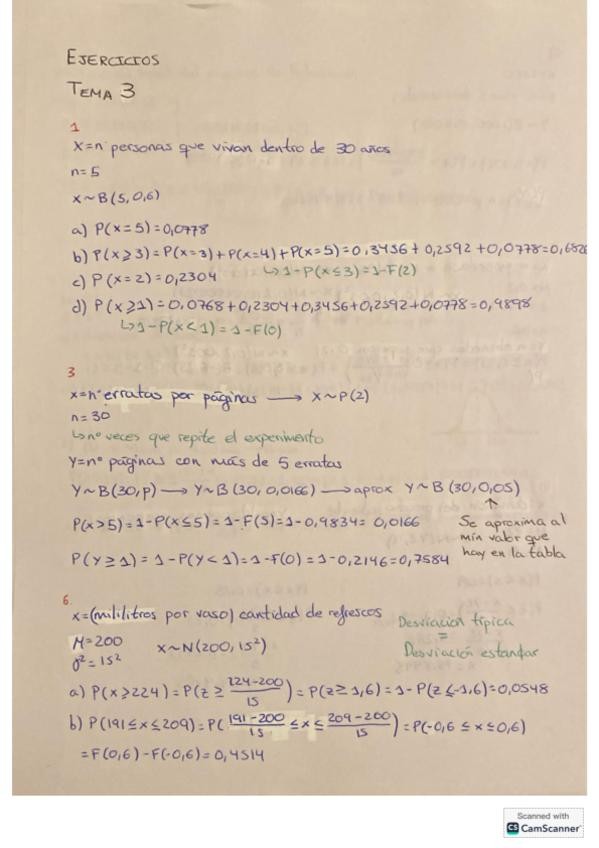 EJERCICIOS
TEMA 3
1
X=nº personas que vivan dentro de 30 años
n=5
X~B(5,0,6)
a) P(x=5)=0,0778
b) P(x≥3)=P(x=3)+P(x=4)+P(x=5)=0,3456+0,2592+0,0778=0,6826
↳1-P(x≤3)=1-F(2)
c) P(x=2)=0,2304
d) P(x≥1)=0,0768+0,2304+0,3456+0,2592+0,0778=0,9898
↳1-P(x<1)=1-F(0)
3
x=nº erratas por páginas → X~P(2)
n=30
↳nº veces que repite el experimento
Y=nº páginas con más de 5 erratas
Y~B(30,p) → Y~B(30, 0,0166) → aprox Y~B(30,0,05)
P(x>5)=1-P(x≤5)=1-F(5)=1-0,9834=0,0166
P(Y≥1)=1-P(Y<1)=1-F(0)=1-0,2146=0,7584
↑
Se aproxima al
mín valor que
hay en la tabla
6.
x=(mililitros por vaso) cantidad de refrescos
M=200
σ²=15²
X~N(200,15²)
Desviación típica
=
Desviación estandar
a) P(x≥224)=P(z≥ 224-200/15)=P(z≥1,6)=1-P(z≤1,6)=0,0548
b) P(191≤x≤209)=P( 191-200/15 ≤x≤ 209-200/15 )=P(-0,6≤x≤0,6)
=F(0,6)-F(-0,6)=0,4514
Scanned with
CS CamScanner